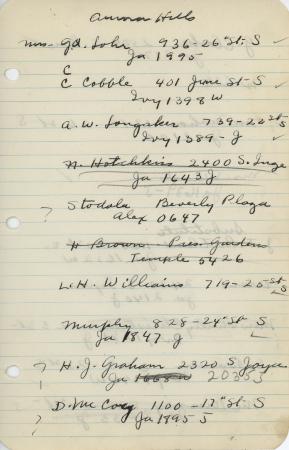 Aurora Hills
Mrs. Gd. Lohr 936-26 St. S
Ja 1995
C
C Cobble 401 June St-S
Ivy 1398 W
A. W. Longaker 739-22 St S
Ivy 1389-J
H. Hotchkins 2400 S. Inge
Ja 1643 J
? Stodola Beverly Plaza
Alex 0647
H Brown Pres. Gardens
Temple 5426
L. H. Williams 719-20 St S
Murphy 828-24" St S
Ja 1847 J
? H. J. Graham 2320 S Joyce
Ja 1668 W 2035 J
D. McCoy 1100-17" St. S
? Ja 1895 J